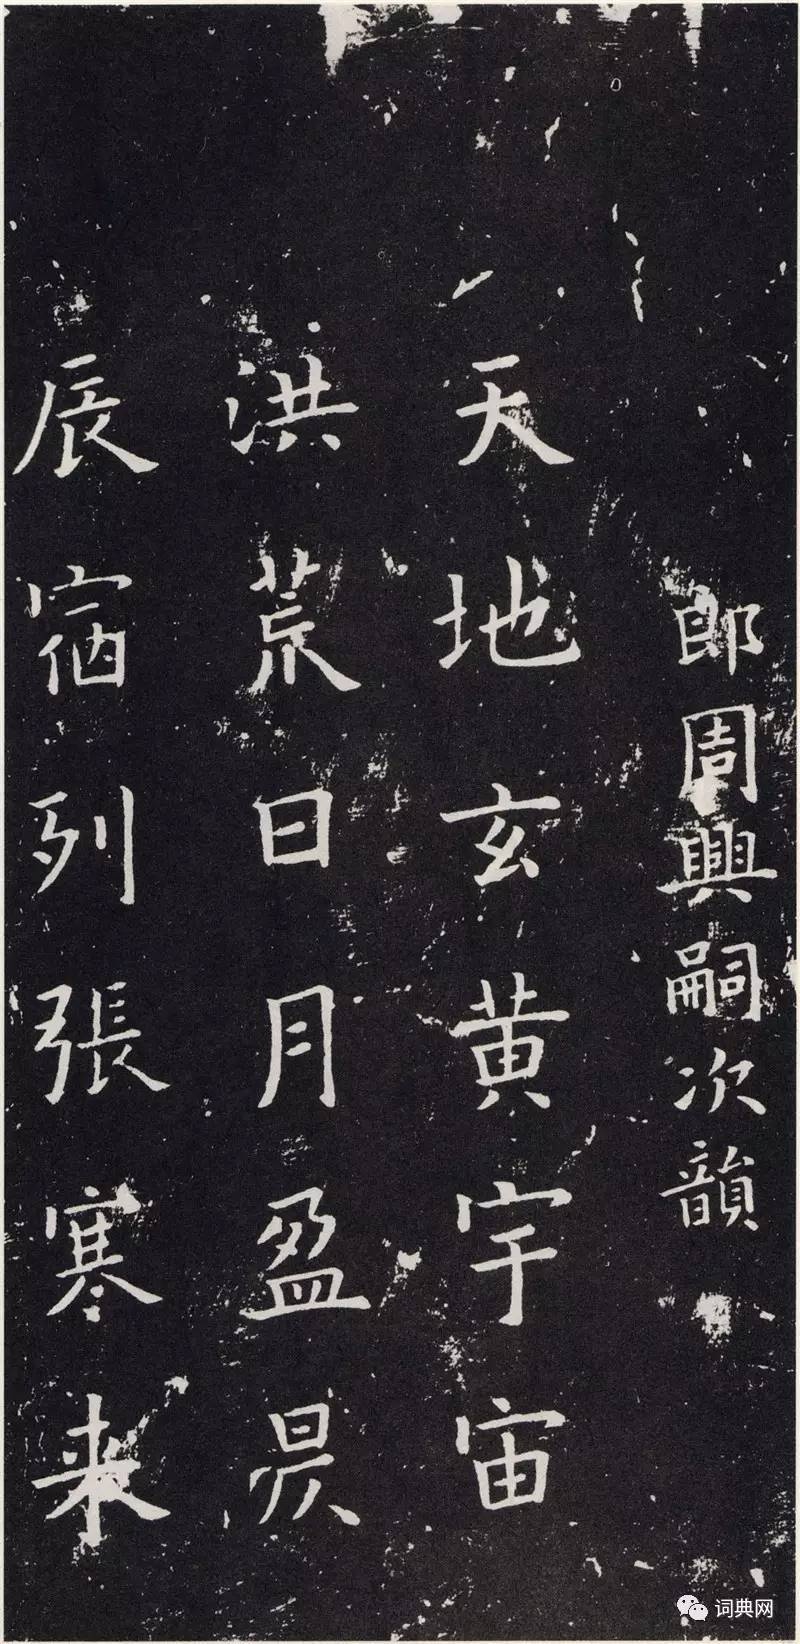 郎周興嗣次韻
天地玄黄宇宙
洪荒日月盈昃
辰宿列張寒来
词典网